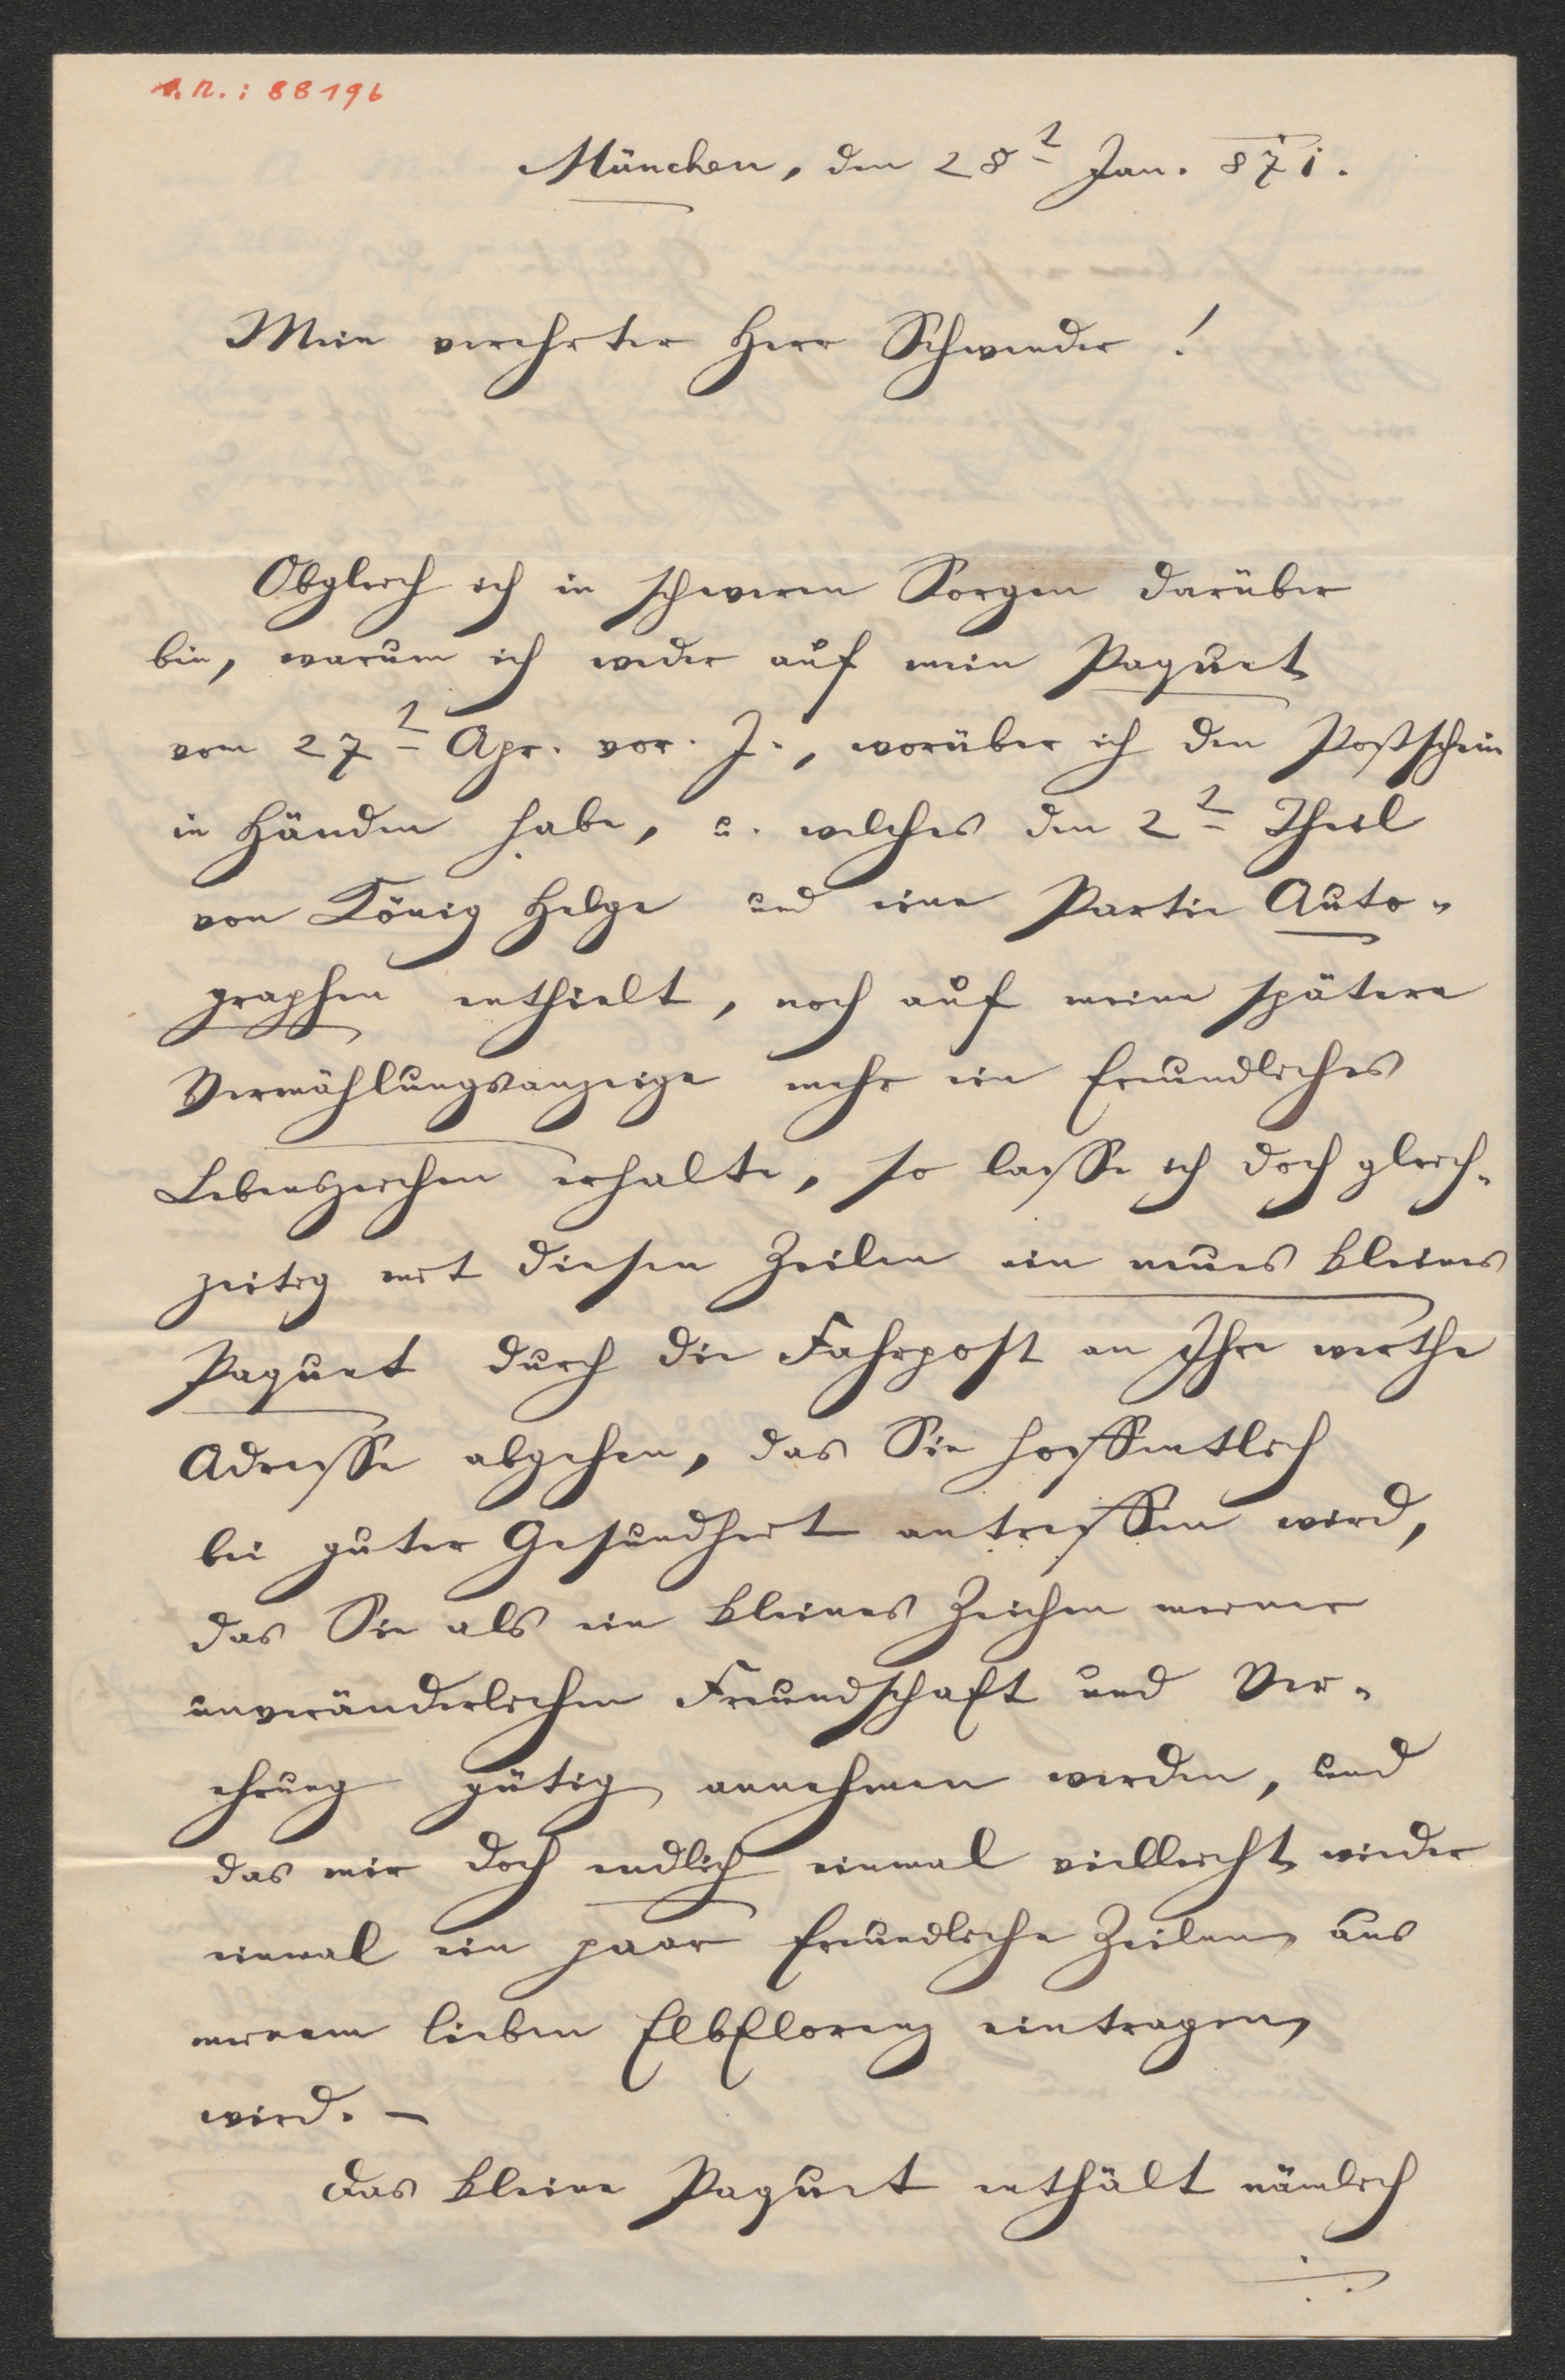 A.N.: 88196
München, den 28t Jan. 871.
Mein verehrter Herr Schwender!
Obgleich ich in schweren Sorgen darüber
bin, warum ich weder auf mein Paquet
vom 27t Apr. vor. J., worüber ich den Postschein
in Händen habe, u. welches den 2t Theil
von König Helge und eine Partie Auto-
graphen enthielt, noch auf meine spätere
Vermählungsanzeige mehr ein freundliches
Lebenszeichen erhalte, so lasse ich doch gleich-
zeitig mit diesen Zeilen ein neues kleines
Paquet durch die Fahrpost an Ihre werthe
Adresse abgehen, das Sie hoffentlich
bei guter Gesundheit antreffen wird,
das Sie als ein kleines Zeichen meiner
unveränderlichen Freundschaft und Ver-
ehrung gütig annehmen werden, und
das mir doch endlich einmal vielleicht wieder
einmal ein paar freundliche Zeilen aus
meinem lieben Elbflorenz eintragen
wird. —
Das kleine Paquet enthält nämlich